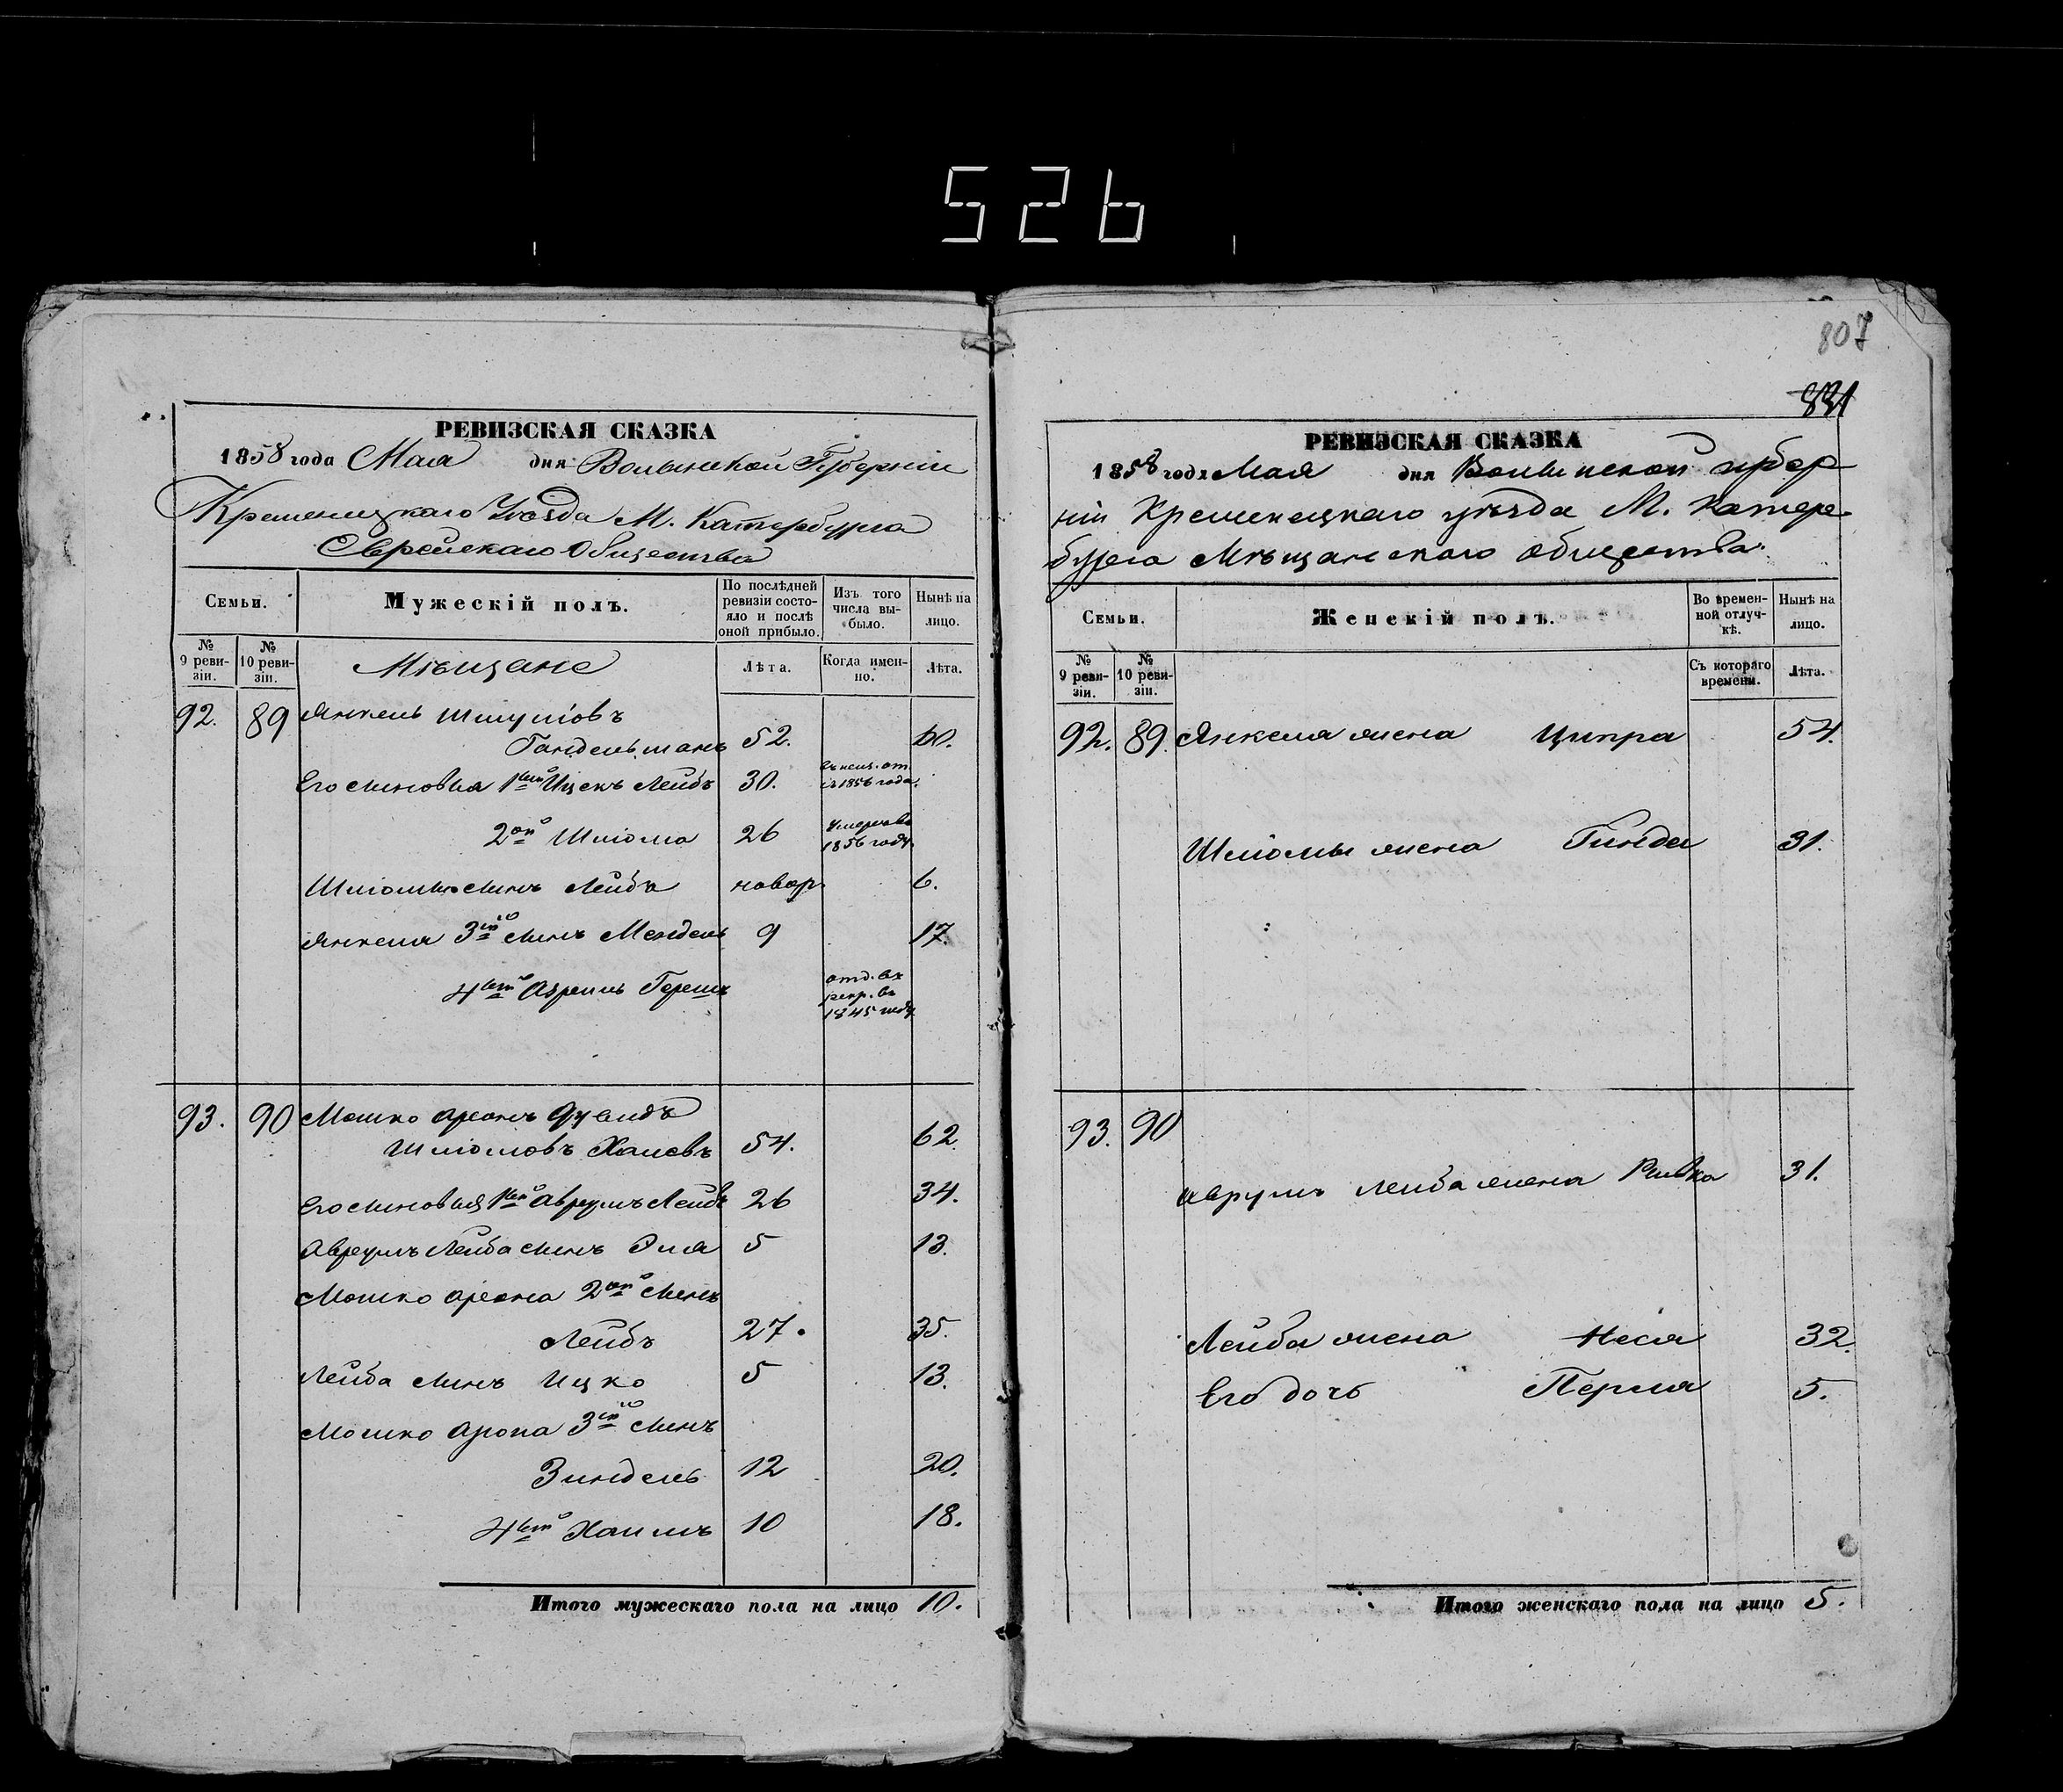 526
807
831
РЕВИЗСКАЯ СКАЗКА
1858 года Мая дня Волынской Губерніи
Кременецкаго Уѣзда М. Катербурга
Еврейскаго Общества
Семьи.
Мужескій полъ.
По послѣдней ревизіи состояло и послѣ оной прибыло.
Изъ того числа выбыло.
Нынѣ на лицо.
№ 9 ревизіи.
№ 10 ревизіи.
Мѣщане
Лѣта.
Когда именно.
Лѣта.
92. 89 Янкель Шмулiовъ
Гандельманъ 52. 60.
Его сыновья 1й Ицекъ Лейбъ 30. 1856 года.
2ой Шліома 26 Умеръ въ 1856 году.
Шліомы сынъ Лейба новор. 6.
Янкеля 3ій сынъ Мендель 9 17.
4ый Герш отд. въ рекр. въ 1845 году
93. 90 Мошко Аронъ Дувидъ
Шліомовъ 54. 62.
Его сыновья 1й Аврумъ Лейбъ 26 34.
Аврумъ Лейба сынъ Эля 5 13.
Мошко Арона 2ой сынъ
Лейбъ 27. 35.
Лейба сынъ Ицко 5 13.
Мошко Арона 3ій сынъ
Зиндель 12 20.
4ый Хаимъ 10 18.
Итого мужескаго пола на лицо 10.
РЕВИЗСКАЯ СКАЗКА
1858 года Мая дня Волынской губер
ніи Кременецкаго уѣзда М. Катере
бурга Мѣщанскаго общества.
Семьи.
Женскій полъ.
Во временной отлучкѣ.
Нынѣ на лицо.
№ 9 ревизіи.
№ 10 ревизіи.
Съ котораго времени.
Лѣта.
92. 89. Янкеля жена Ципра 54.
Шліомы жена Гинда 31.
93. 90
Аврумъ Лейба жена Ривка 31.
Лейба жена Неся 32.
Его дочь Перля 5.
Итого женскаго пола на лицо 5.